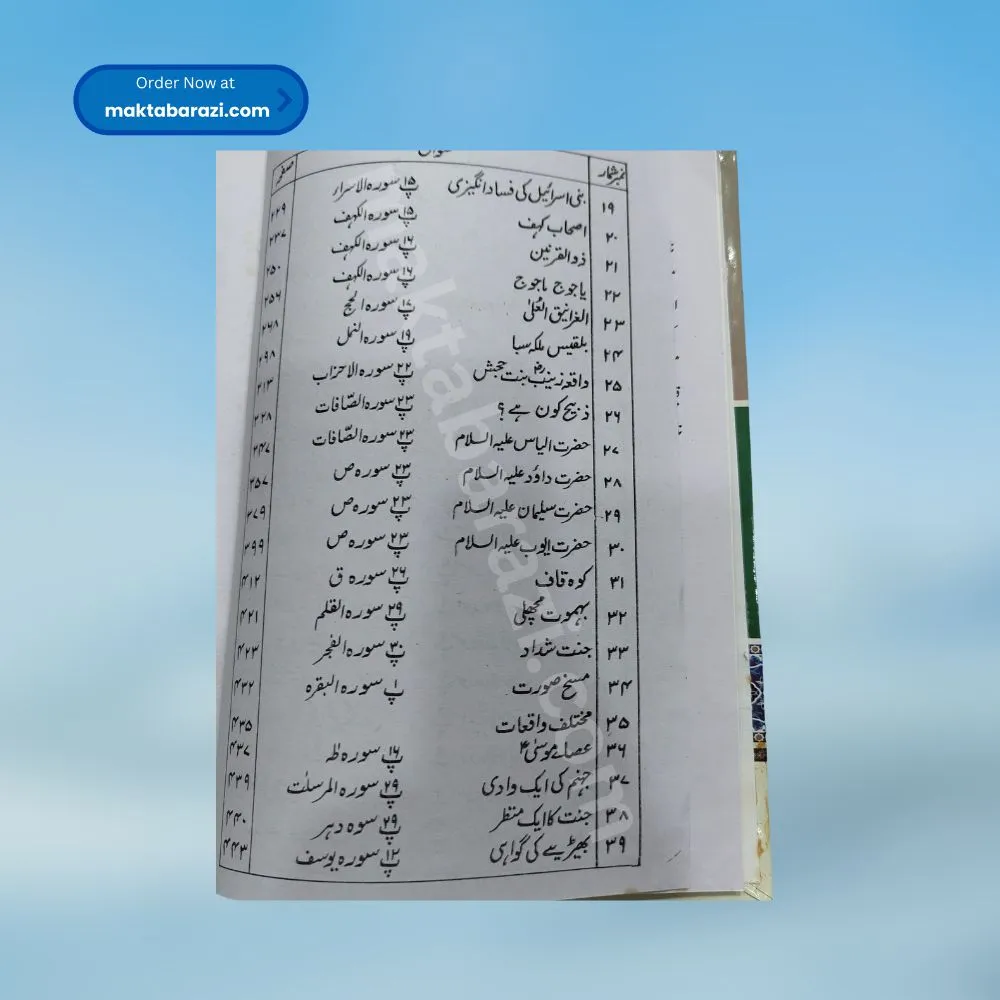 Order Now at
maktabarazi.com
نمبر شمار عنوان صفحہ
۱۹ بنی اسرائیل کی فساد انگیزی پ۱۵ سورہ الاسرار ۲۲۹
۲۰ اصحاب کہف پ۱۵ سورہ الکہف ۲۳۷
۲۱ ذوالقرنین پ۱۶ سورہ الکہف ۲۵۰
۲۲ یاجوج ماجوج پ۱۶ سورہ الکہف ۲۵۶
۲۳ الغرانیق العُلیٰ پ۱۷ سورہ الحج ۲۶۸
۲۴ بلقیس ملکہ سبا پ۱۹ سورہ النمل ۲۹۸
۲۵ واقعہ زینبؓ بنت جحش پ۲۲ سورہ الاحزاب ۳۱۳
۲۶ ذبیح کون ہے؟ پ۲۳ سورہ الصّافات ۳۲۸
۲۷ حضرت الیاس علیہ السلام پ۲۳ سورہ الصّافات ۳۴۷
۲۸ حضرت داؤد علیہ السلام پ۲۳ سورہ ص ۳۵۷
۲۹ حضرت سلیمان علیہ السلام پ۲۳ سورہ ص ۳۷۹
۳۰ حضرت ایوب علیہ السلام پ۲۳ سورہ ص ۳۹۹
۳۱ کوہ قاف پ۲۶ سورہ ق ۴۱۲
۳۲ بہموت مچھلی پ۲۹ سورہ القلم ۴۲۱
۳۳ جنت شداد پ۳۰ سورہ الفجر ۴۲۳
۳۴ مسخ صورت پ۱ سورہ البقرہ ۴۳۲
۳۵ مختلف واقعات ۴۳۵
۳۶ عصائے موسیٰؑ پ۱۶ سورہ طٰہٰ ۴۳۷
۳۷ جہنم کی ایک وادی پ۲۹ سورہ المرسلٰت ۴۳۹
۳۸ جنت کا ایک منظر پ۲۹ سوہ دہر ۴۴۰
۳۹ بھیڑیے کی گواہی پ۱۲ سورہ یوسف ۴۴۳
maktabarazi.com